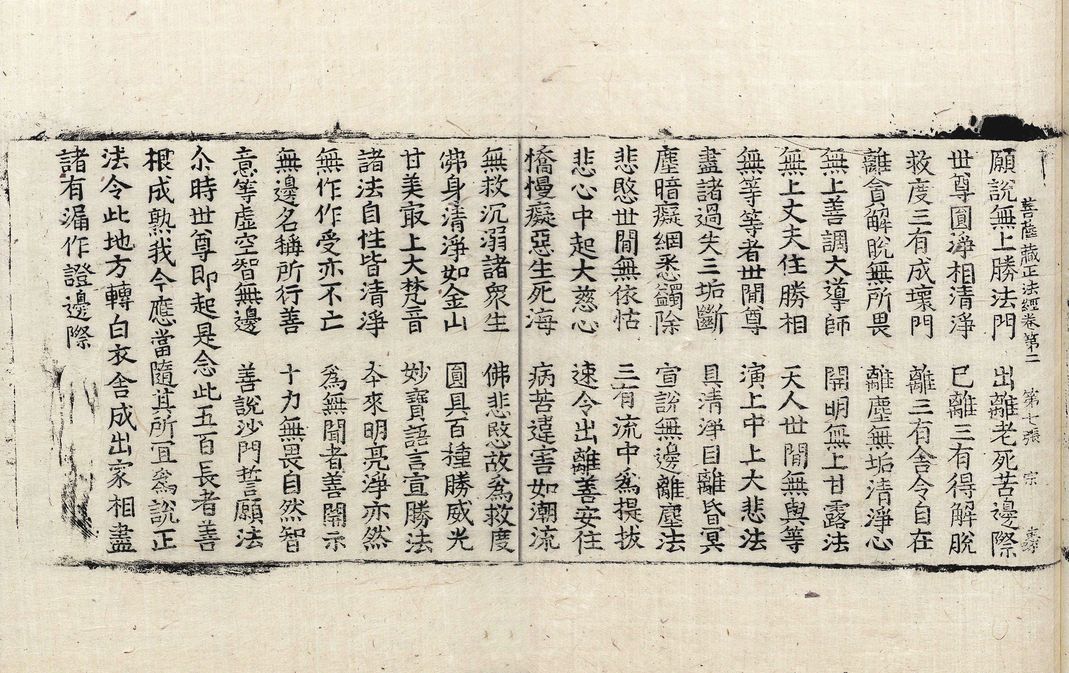 菩薩藏正法經卷第二 第七張 宗
願說無上勝法門 出離老死苦邊際
世尊圓淨相清淨 已離三有得解脫
救度三有成壞門 離三有舍令自在
離貪解脫無所畏 離塵無垢清淨心
無上善調大導師 開明無上甘露法
無上丈夫住勝相 天人世間無與等
無等等者世間尊 演上中上大悲法
盡諸過失三垢斷 具清淨目離昏冥
塵暗癡網悉蠲除 宣說無邊離塵法
悲愍世間無依怙 三有流中為提拔
悲心中起大慈心 速令出離善安住
憍慢癡惡生死海 病苦違害如潮流
無救沉溺諸衆生 佛悲愍故為救度
佛身清淨如金山 圓具百種勝威光
甘美最上大梵音 妙寶語言宣勝法
諸法自性皆清淨 本來明亮淨亦然
無作作受亦不亡 為無聞者善開示
無邊名稱所行善 十力無畏自然智
意等虛空智無邊 善說沙門誓願法
尒時世尊即起是念此五百長者善
根成熟我今應當隨其所宜為說正
法令此地方轉白衣舍成出家相盡
諸有漏作證邊際